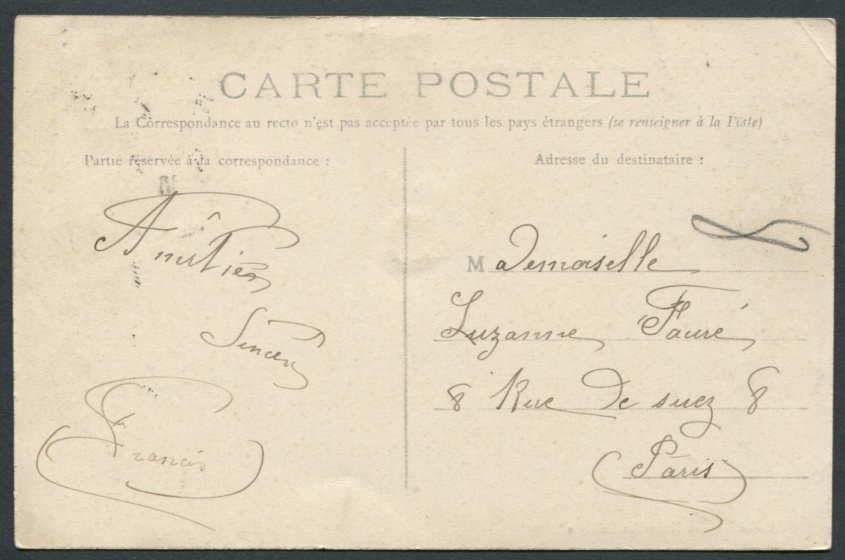 CARTE POSTALE
La Correspondance au recto n'est pas acceptée par tous les pays étrangers (se renseigner à la Poste)
Partie réservée à la correspondance :
Amitiés
Sincères
Francis
Adresse du destinataire :
Mademoiselle
Suzanne Fauré
8 Rue De suez 8
Paris